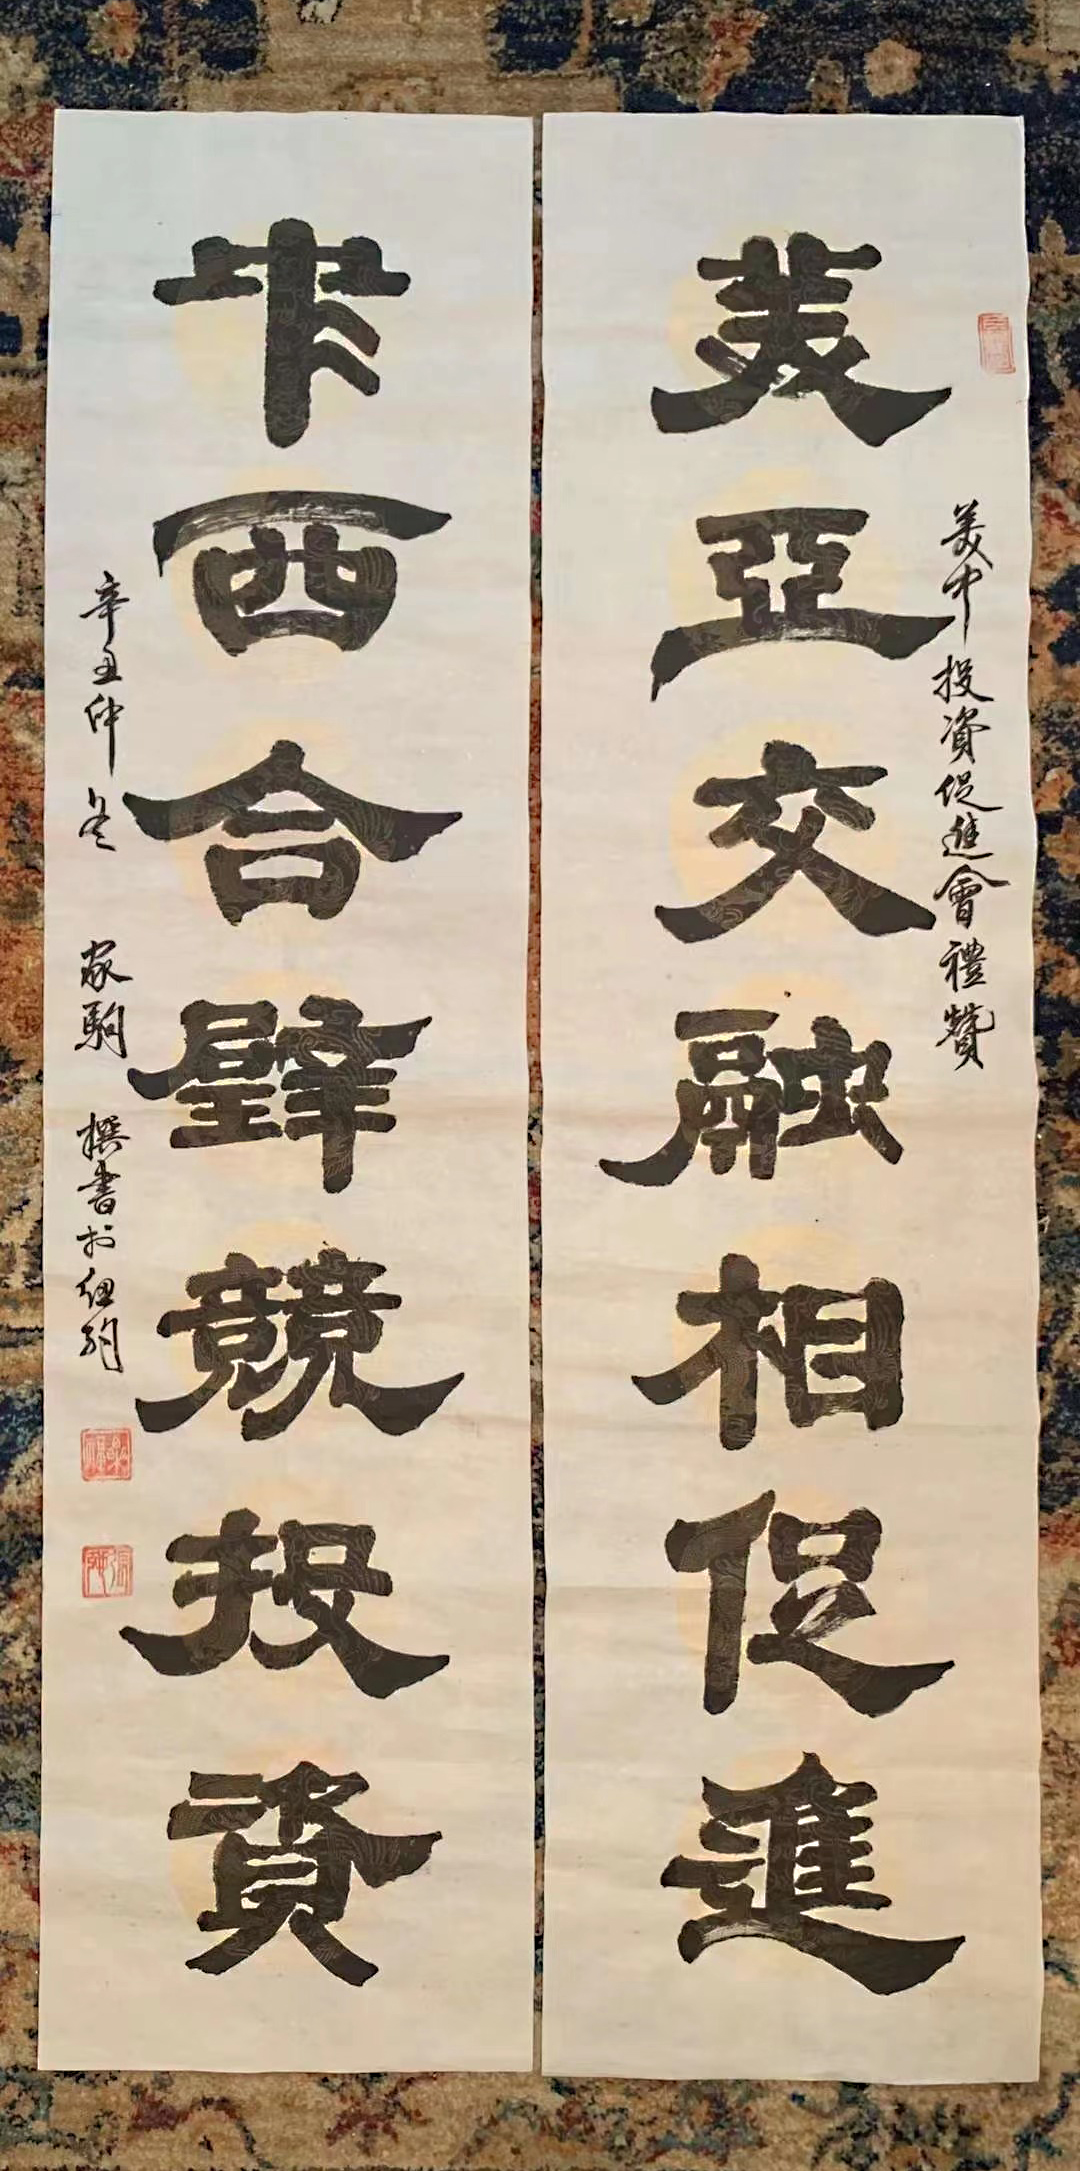 美中投資促進會禮贊
美亞交融相促進
中西合璧競投資
辛丑仲冬 家駒 撰書於紐約